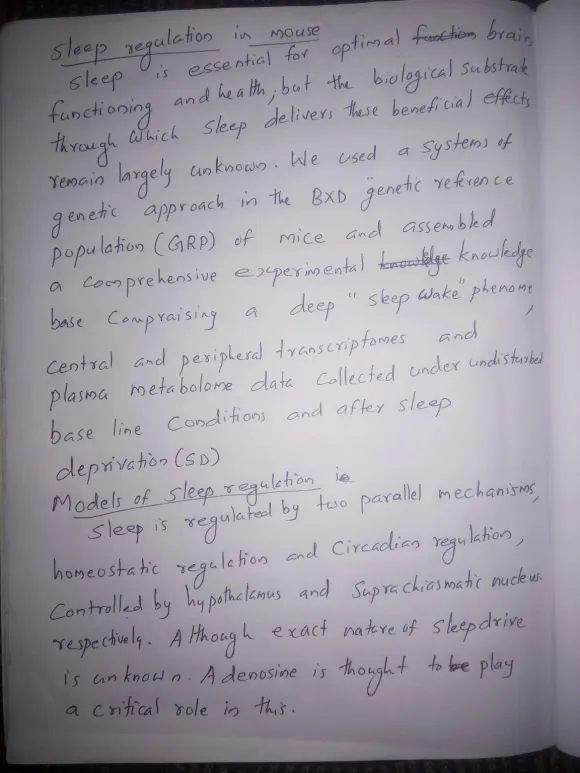 Sleep regulation in mouse
Sleep is essential for optimal function brain
functioning and health, but the biological substrate
through which sleep delivers these beneficial effects
remain largely unknown. We used a systems of
genetic approach in the BXD genetic reference
population (GRP) of mice and assembled
a comprehensive experimental knowldge knowledge
base Compraising a deep "sleep wake" phenome,
central and peripheral transcriptomes and
plasma metabolome data collected under undisturbed
base line Conditions and after sleep
deprivation (SD)
Models of sleep regulation is
Sleep is regulated by two parallel mechanisms,
homeostatic regulation and Circadian regulation,
Controlled by hypothalamus and Suprachiasmatic nucleus.
respectively. Although exact nature of sleep drive
is unknown. Adenosine is thought to be play
a critical role in this.